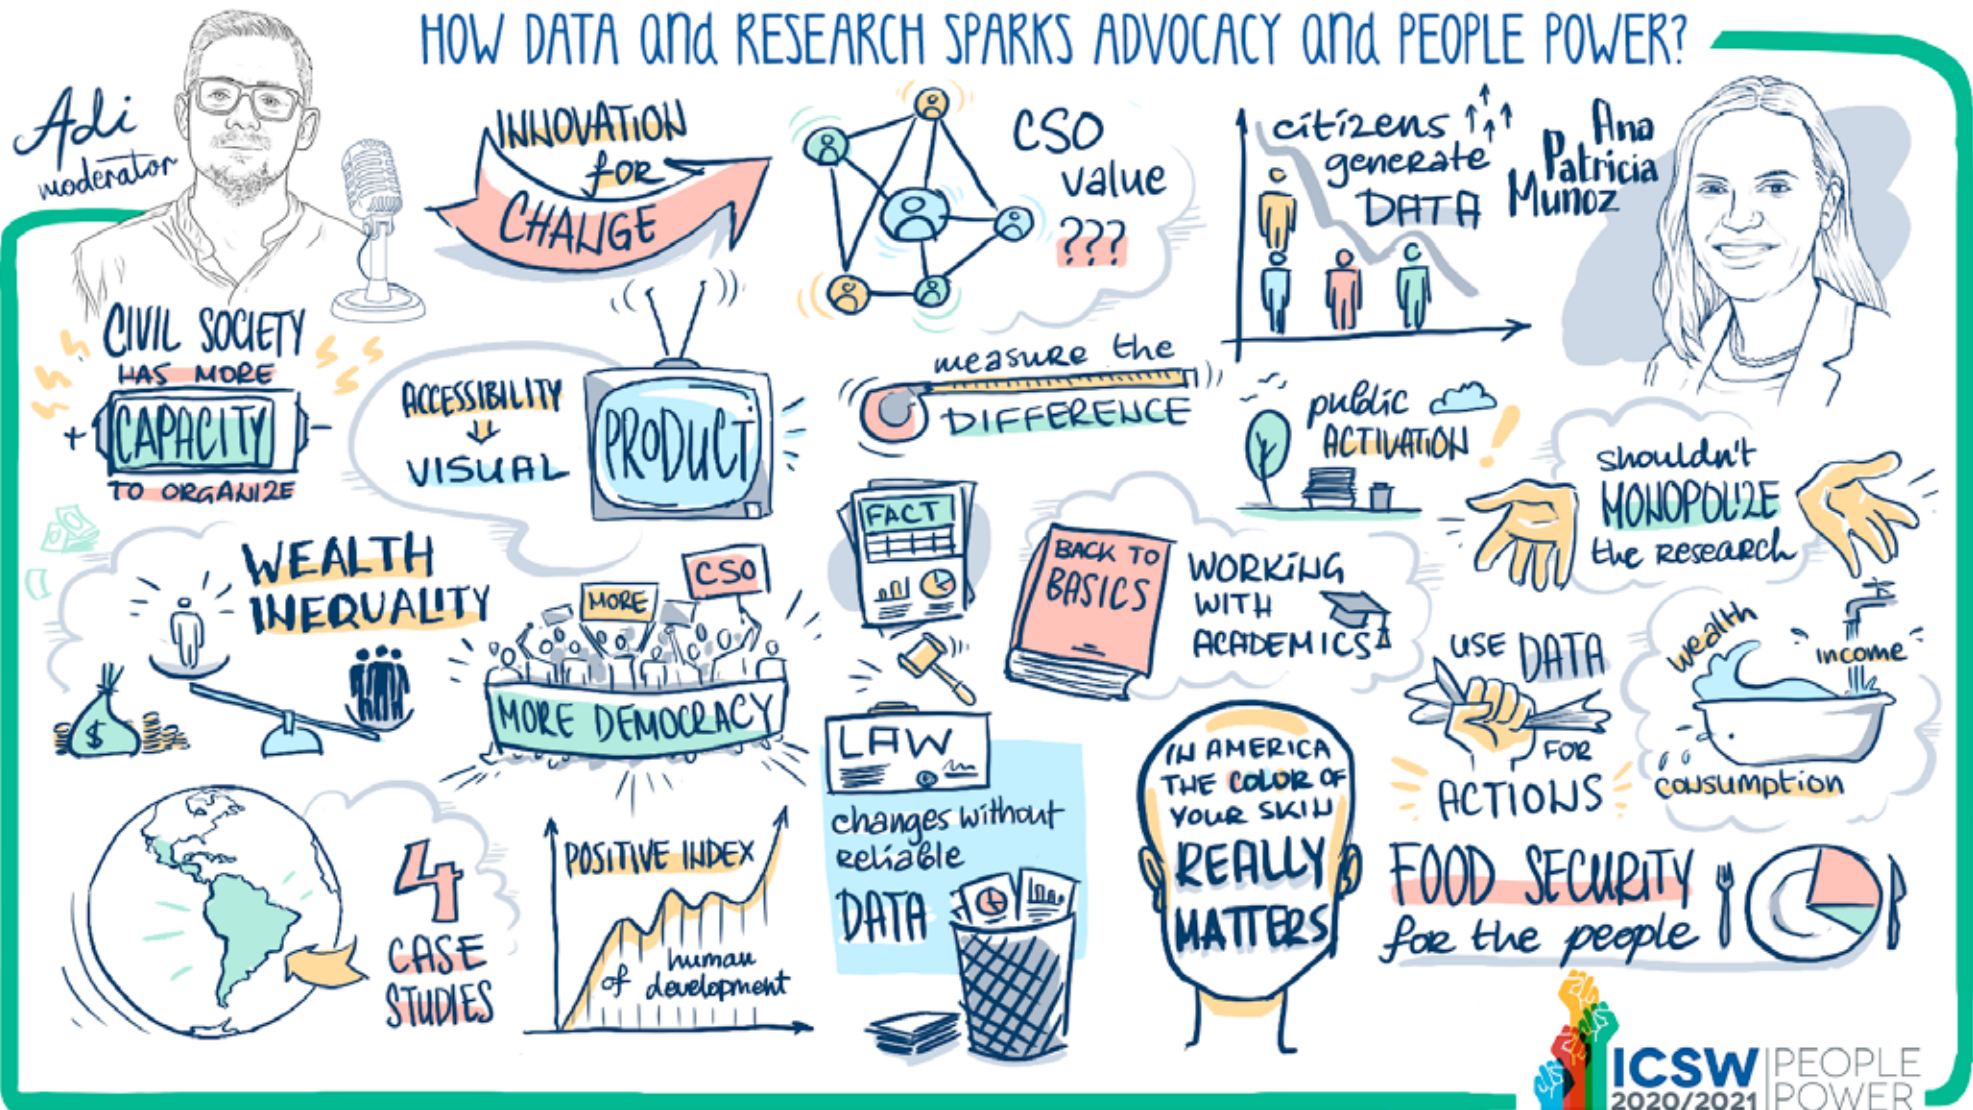 HOW DATA and RESEARCH SPARKS ADVOCACY and PEOPLE POWER?
Adi
moderator
INNOVATION
for
CHANGE
CSO
value
???
citizens
generate
DATA
Ana
Patricia
Munoz
CIVIL SOCIETY
HAS MORE
+ CAPACITY -
TO ORGANIZE
ACCESSIBILITY
VISUAL
PRODUCT
measure the
DIFFERENCE
public
ACTIVATION !
shouldn't
MONOPOLIZE
the RESEARCH
WEALTH
INEQUALITY
$
MORE
CSO
MORE DEMOCRACY
FACT
BACK TO
BASICS
WORKING
WITH
ACADEMICS
USE DATA
FOR
ACTIONS
wealth
income
consumption
LAW
changes without
reliable
DATA
IN AMERICA
THE COLOR OF
YOUR SKIN
REALLY
MATTERS
FOOD SECURITY
for the people
4
CASE
STUDIES
POSITIVE INDEX
of human
development
ICSW
2020/2021
PEOPLE
POWER